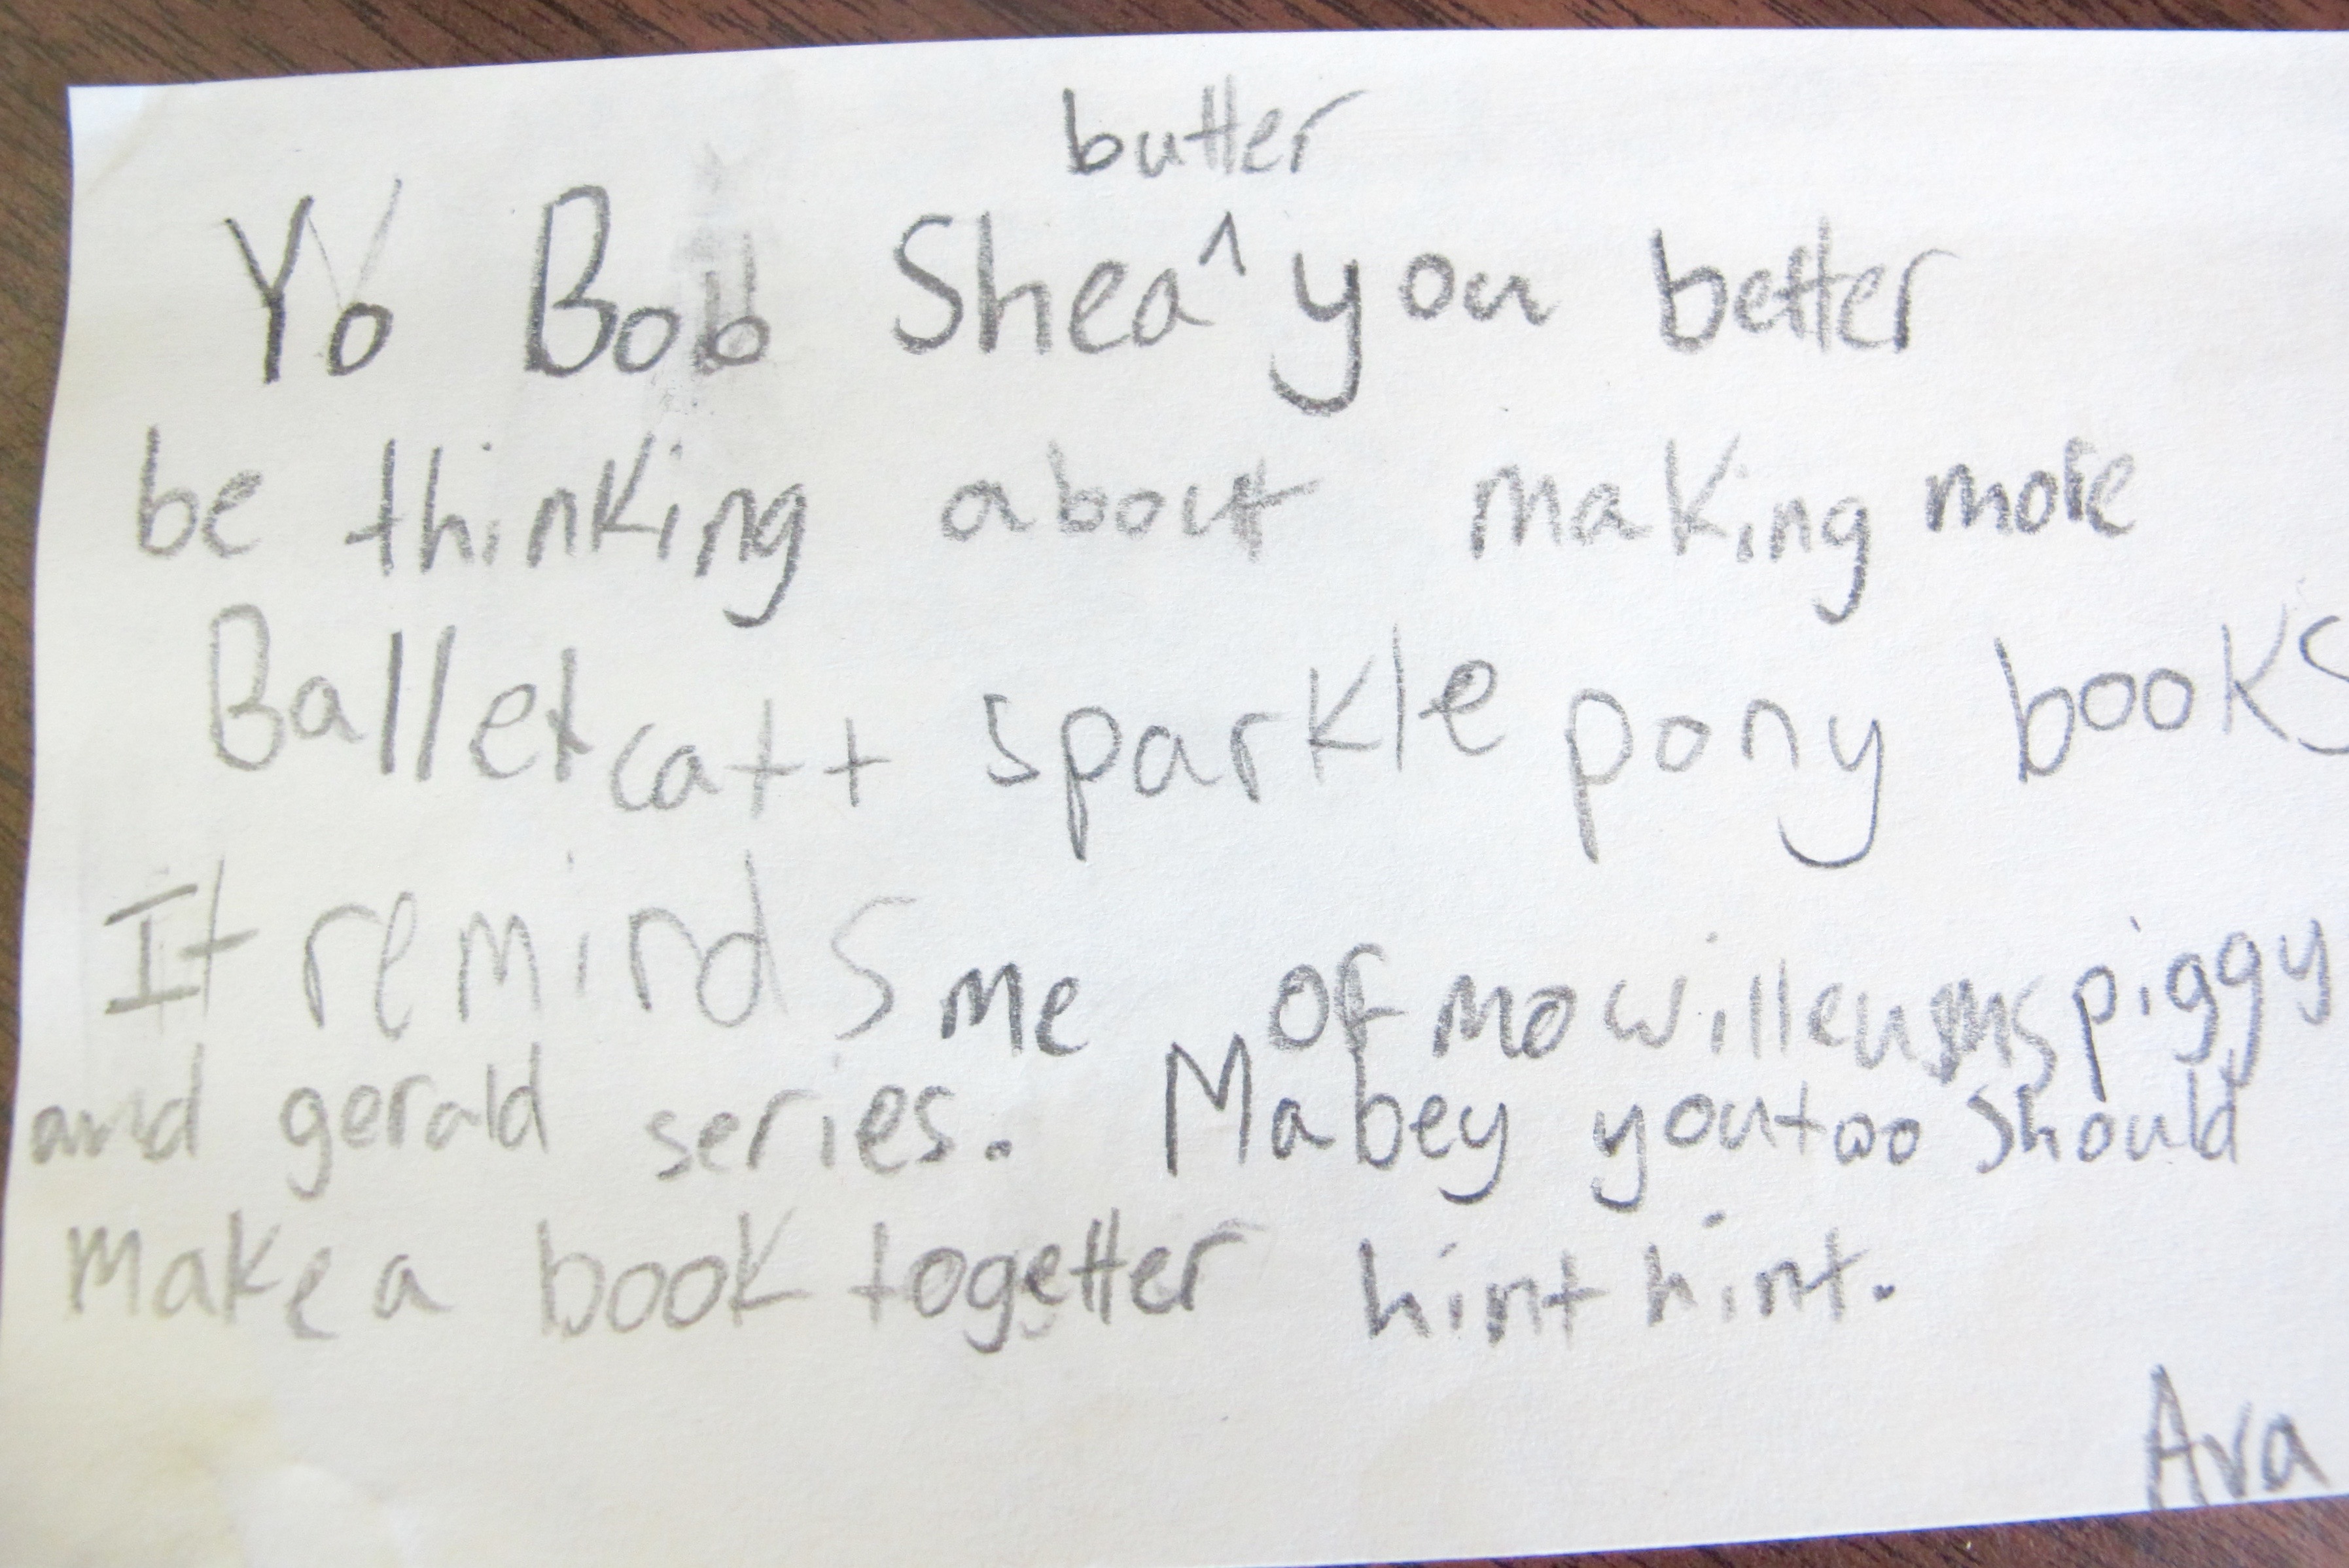 butter
Yo Bob Shea ^ you better
be thinking about making more
Ballet cat + sparkle pony books
It reminds me of mo willeums piggy
and gerald series. Mabey you too should
make a book togetter hint hint.
Ava